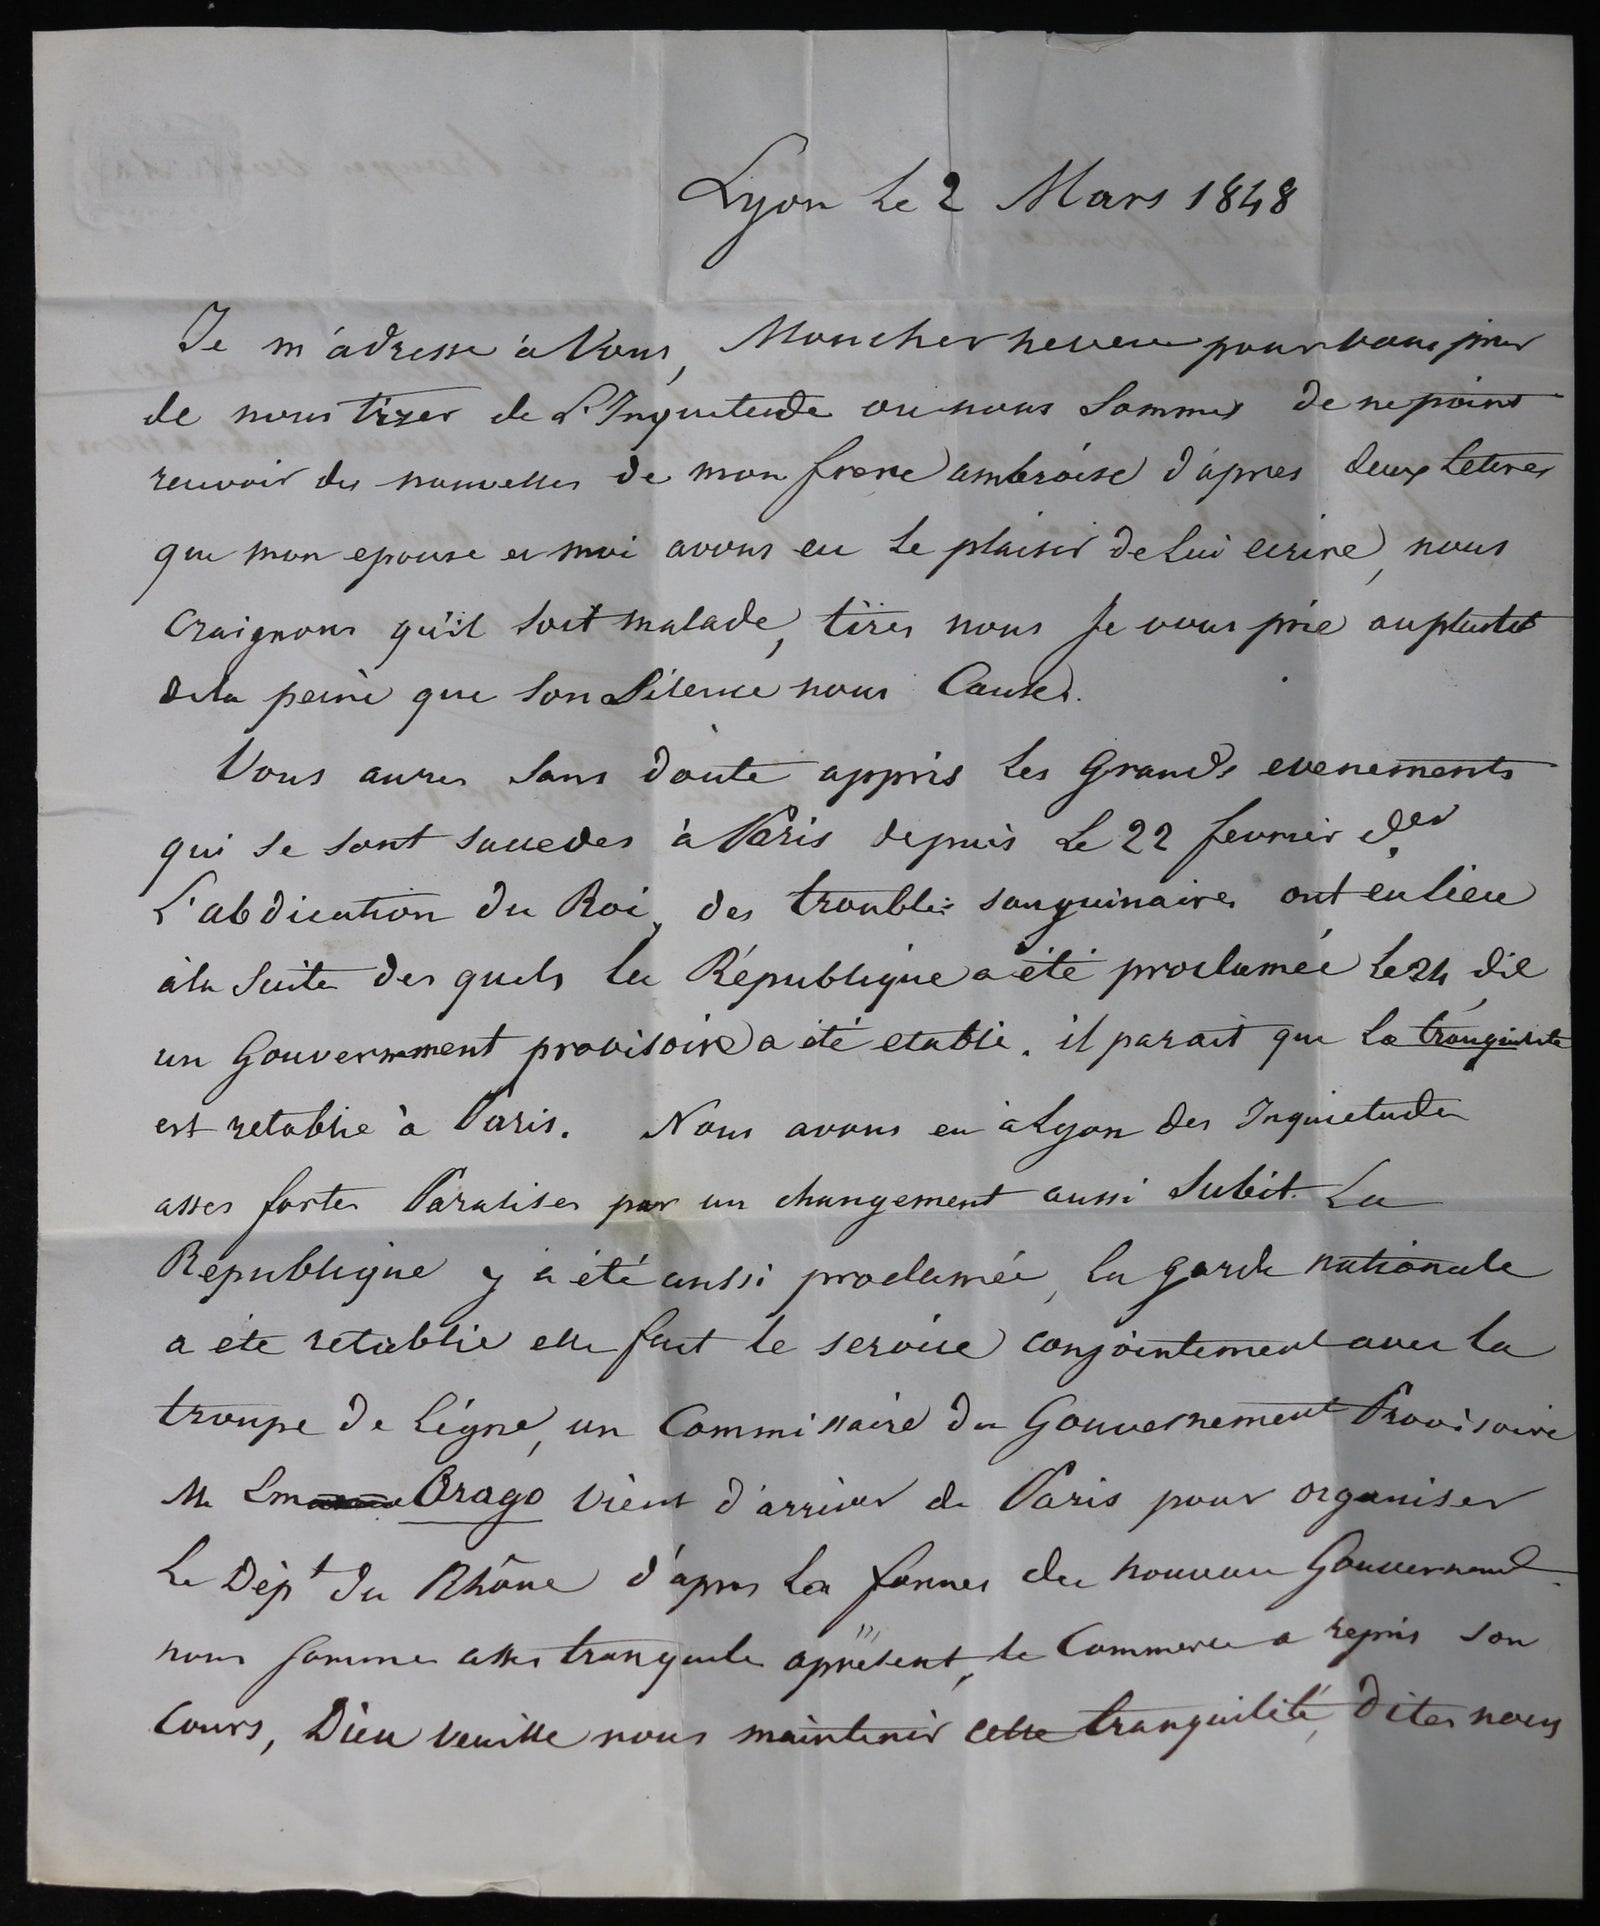 Lyon le 2 Mars 1848
Je m'adresse à Vous, Moncher neveu pour vous prier
de nous tirer de L'Inquietude ou nous Sommes de ne point
recevoir des nouvelles de mon frere ambroise d'àpres deux Lettres
que mon epouse et moi avons eu le plaisir de Lui ecrire, nous
Craignons qu'il soit malade, tires nous Je vous prie auplustot
dela peine que Son Silence nous Cause.
Vous aures Sans doute appris Les Grands evenements
qui se sont succedes à Paris depuis Le 22 fevrier der
L'abdication du Roi, des troubles sanguinaires ont eu lieu
àla Suite des quels la République a été proclamée le 24 dit
un Gouvernement provisoire a été etabli. il parait que la tranquilite
est retablie à Paris. Nous avons eu à Lyon des Inquietudes
asses fortes Paralises par un changement aussi Subit. La
Republique y a été aussi proclamée, la garde nationale
a été retablie elle fait le service conjointement avec la
troupe de Ligne, un Commissaire du Gouvernement Provisoire
Mr Em Arago vient d'arriver de Paris pour organiser
Le Dépt du Rhône d'apres les formes du nouveau Gouvernemt.
nous somme asses tranquile appresent, le Commerce a repris son
Cours, Dieu veuille nous maintenir cette tranquilité, dites nous